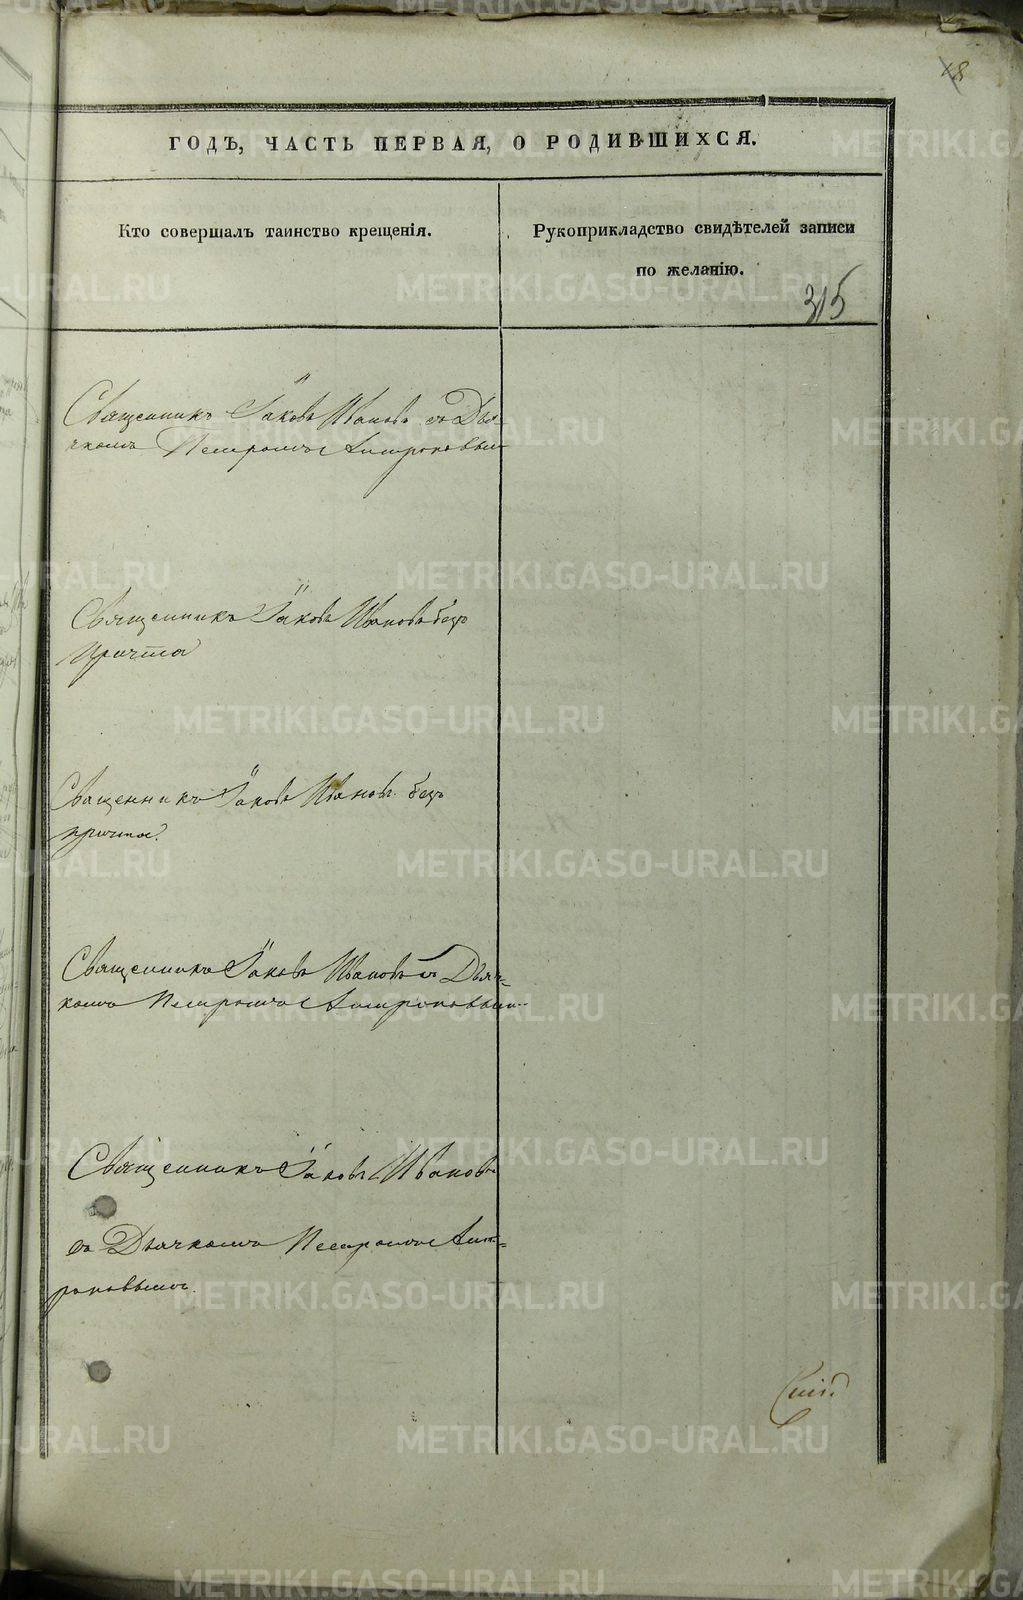 18
ГОДЪ, ЧАСТЬ ПЕРВАЯ, О РОДИВШИХСЯ.
Кто совершалъ таинство крещенія.
Рукоприкладство свидѣтелей записи
по желанію.
315
Священникъ Іаковъ Ивановъ съ Дья-
чкомъ Петромъ Антроповым
Священникъ Іаковъ Ивановъ безъ
причта
Священникъ Іаковъ Ивановъ безъ
причта.
Священникъ Іаковъ Ивановъ съ Дьяч-
комъ Петромъ Антроповым
Священникъ Іаковъ Ивановъ
съ Дьячкомъ Петромъ Ант-
роповымъ.
METRIKI.GASO-URAL.RU